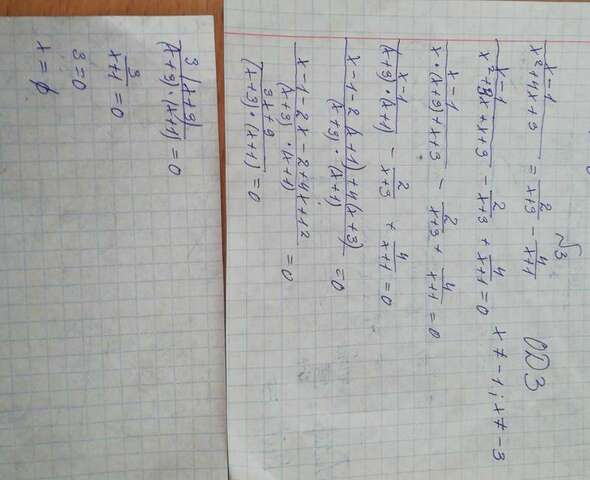 √3
(x-1)/(x²+4x+3) = 2/(x+3) - 4/(x+1)
ОДЗ
(x-1)/(x²+3x+x+3) - 2/(x+3) + 4/(x+1) = 0 x ≠ -1; x ≠ -3
(x-1)/(x·(x+3)+x+3) - 2/(x+3) + 4/(x+1) = 0
(x-1)/((x+3)·(x+1)) - 2/(x+3) + 4/(x+1) = 0
(x-1-2(x+1)+4(x+3))/((x+3)·(x+1)) = 0
(x-1-2x-2+4x+12)/((x+3)·(x+1)) = 0
(3x+9)/((x+3)·(x+1)) = 0
3(x+3)/((x+3)·(x+1)) = 0
3/(x+1) = 0
3=0
x = ∅